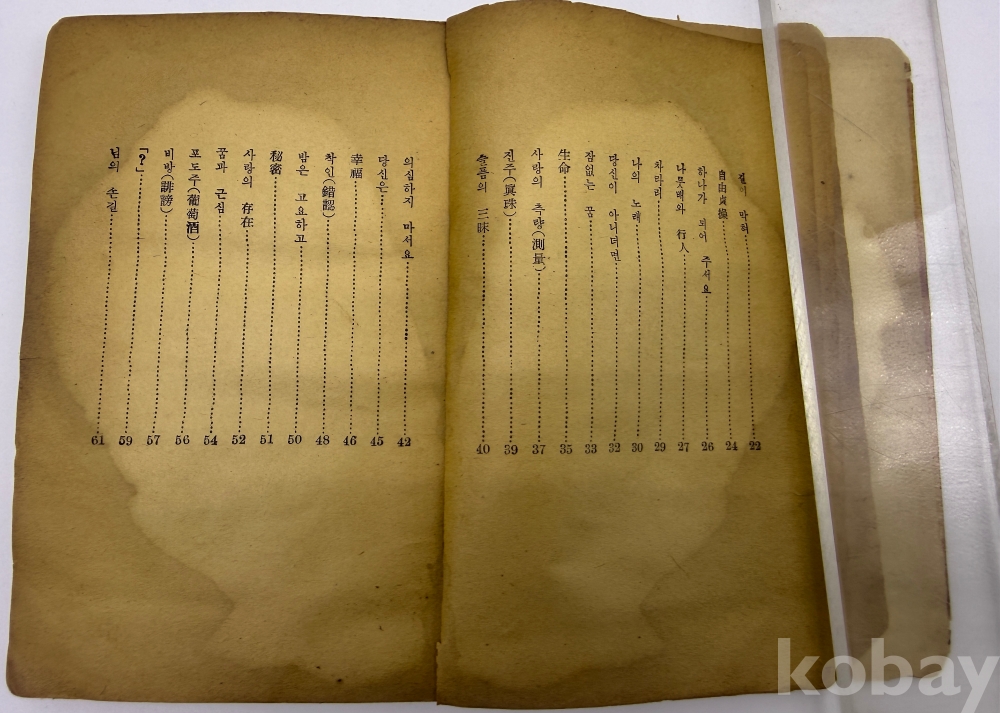 길이 막혀 22
自由貞操 24
하나가 되어 주서요 26
나룻배와 行人 27
차라리 29
나의 노래 30
당신이 아니더면 32
잠없는 꿈 33
生命 35
사랑의 측량(測量) 37
진주(眞珠) 39
슬픔의 三昧 40
의심하지 마서요 42
당신은 45
幸福 46
착인(錯認) 48
밤은 고요하고 50
秘密 51
사랑의 存在 52
꿈과 근심 54
포도주(葡萄酒) 56
비방(誹謗) 57
「?」 59
님의 손길 61
kobay